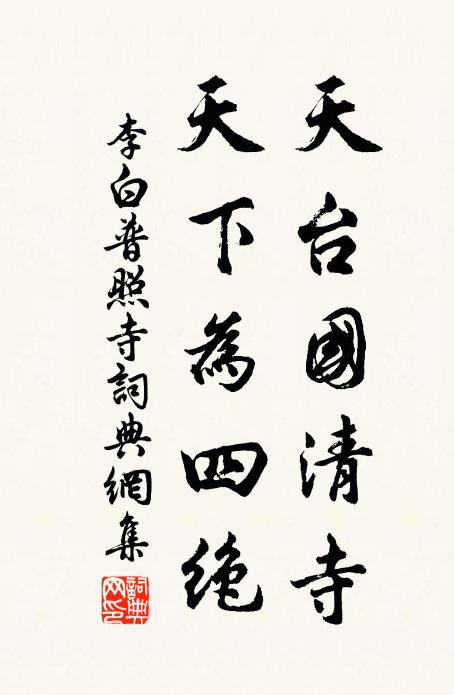 天台國清寺
天下為四絕
李白普照寺詞典網集
詞典網印